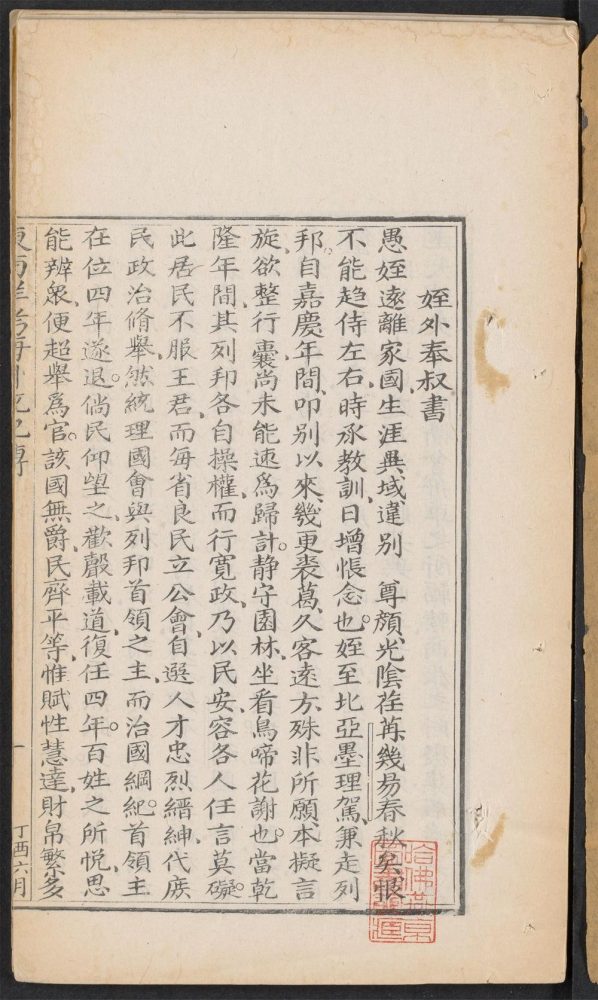 姪外奉叔書
愚姪遠離家國、生涯異域、違別　尊顏、光陰荏苒、幾易春秋矣、恨
不能趨侍左右、時承教訓、日增悵念也。姪至北亞墨理駕、兼走列
邦、自嘉慶年間、叩別以來、幾更裘葛、久客遠方、殊非所願、本擬言
旋、欲整行囊、尚未能速爲歸計。静守園林、坐看鳥啼花謝也、當乾
隆年間、其列邦各自操權、而行寬政、乃以民安、容各人任言莫礙。
此居民不服王君、而每省良民立公會、自選人才忠烈縉紳、代庶
民政治脩舉、然統理國會與列邦首領之主、而治國綱紀。首領主
在位四年遂退。倘民仰望之、歡聲載道、復任四年。百姓之所悦、思
能辨衆、便超舉爲官。該國無爵、民齊平等、惟賦性慧達、財帛繁多
東西洋考每月統記傳
一
丁酉六月